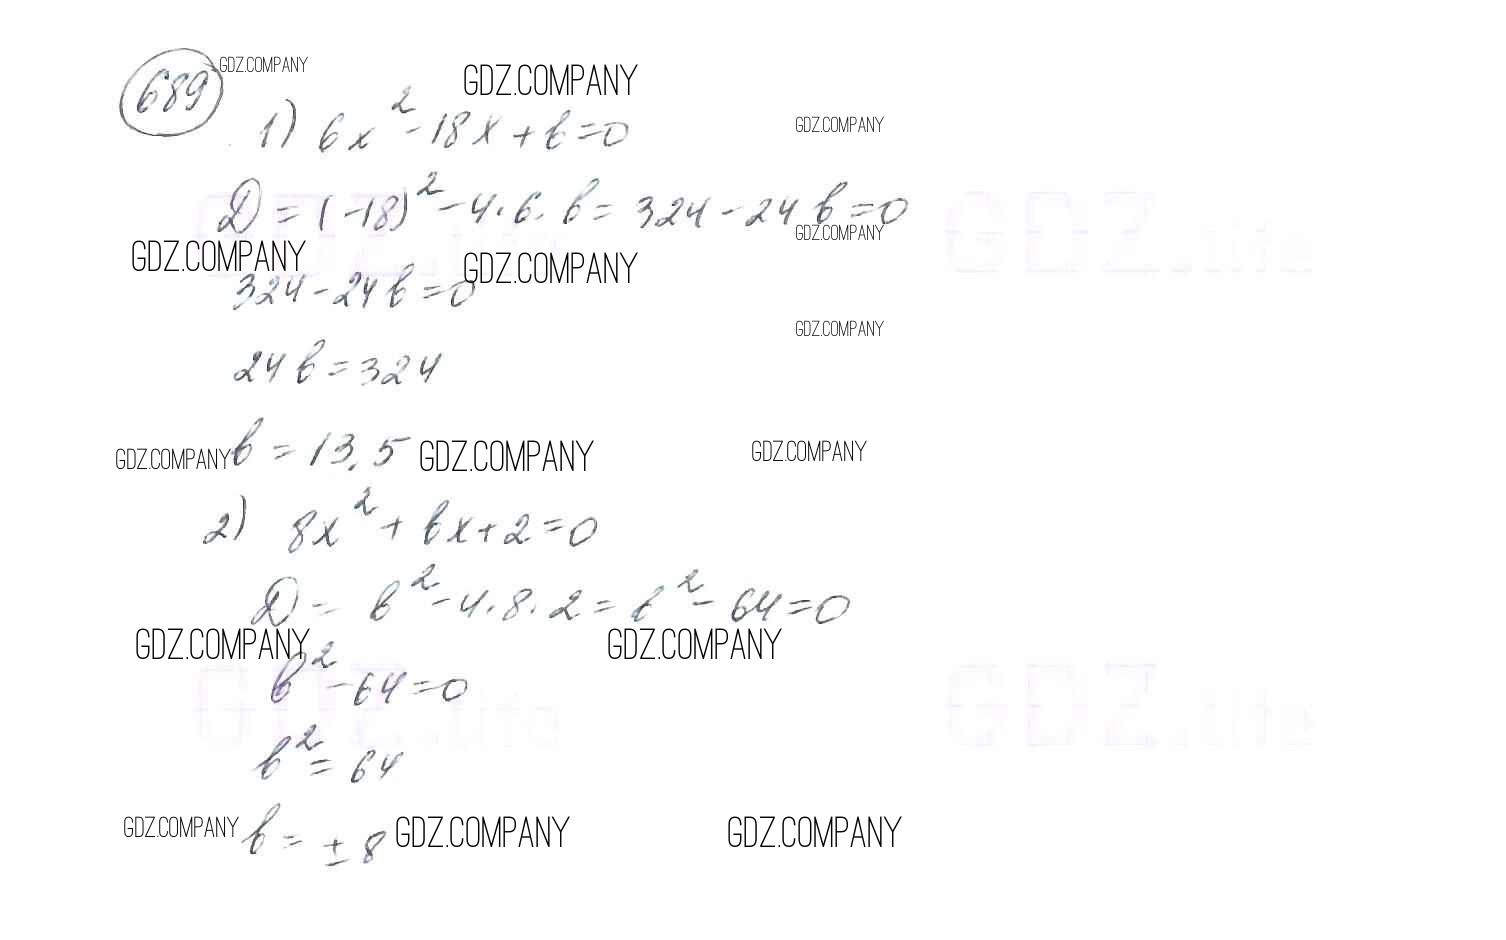 689 GDZ.COMPANY GDZ.COMPANY
1) 6x² - 18x + b = 0 GDZ.COMPANY
D = (-18)² - 4·6·b = 324 - 24b = 0
GDZ.COMPANY GDZ.COMPANY GDZ.COMPANY
GDZ.life GDZ.life
324 - 24b = 0
GDZ.COMPANY
24b = 324
GDZ.COMPANY b = 13,5 GDZ.COMPANY GDZ.COMPANY
2) 8x² + bx + 2 = 0
D = b² - 4·8·2 = b² - 64 = 0
GDZ.COMPANY GDZ.COMPANY
b² - 64 = 0
GDZ.life GDZ.life
b² = 64
GDZ.COMPANY b = ± 8 GDZ.COMPANY GDZ.COMPANY